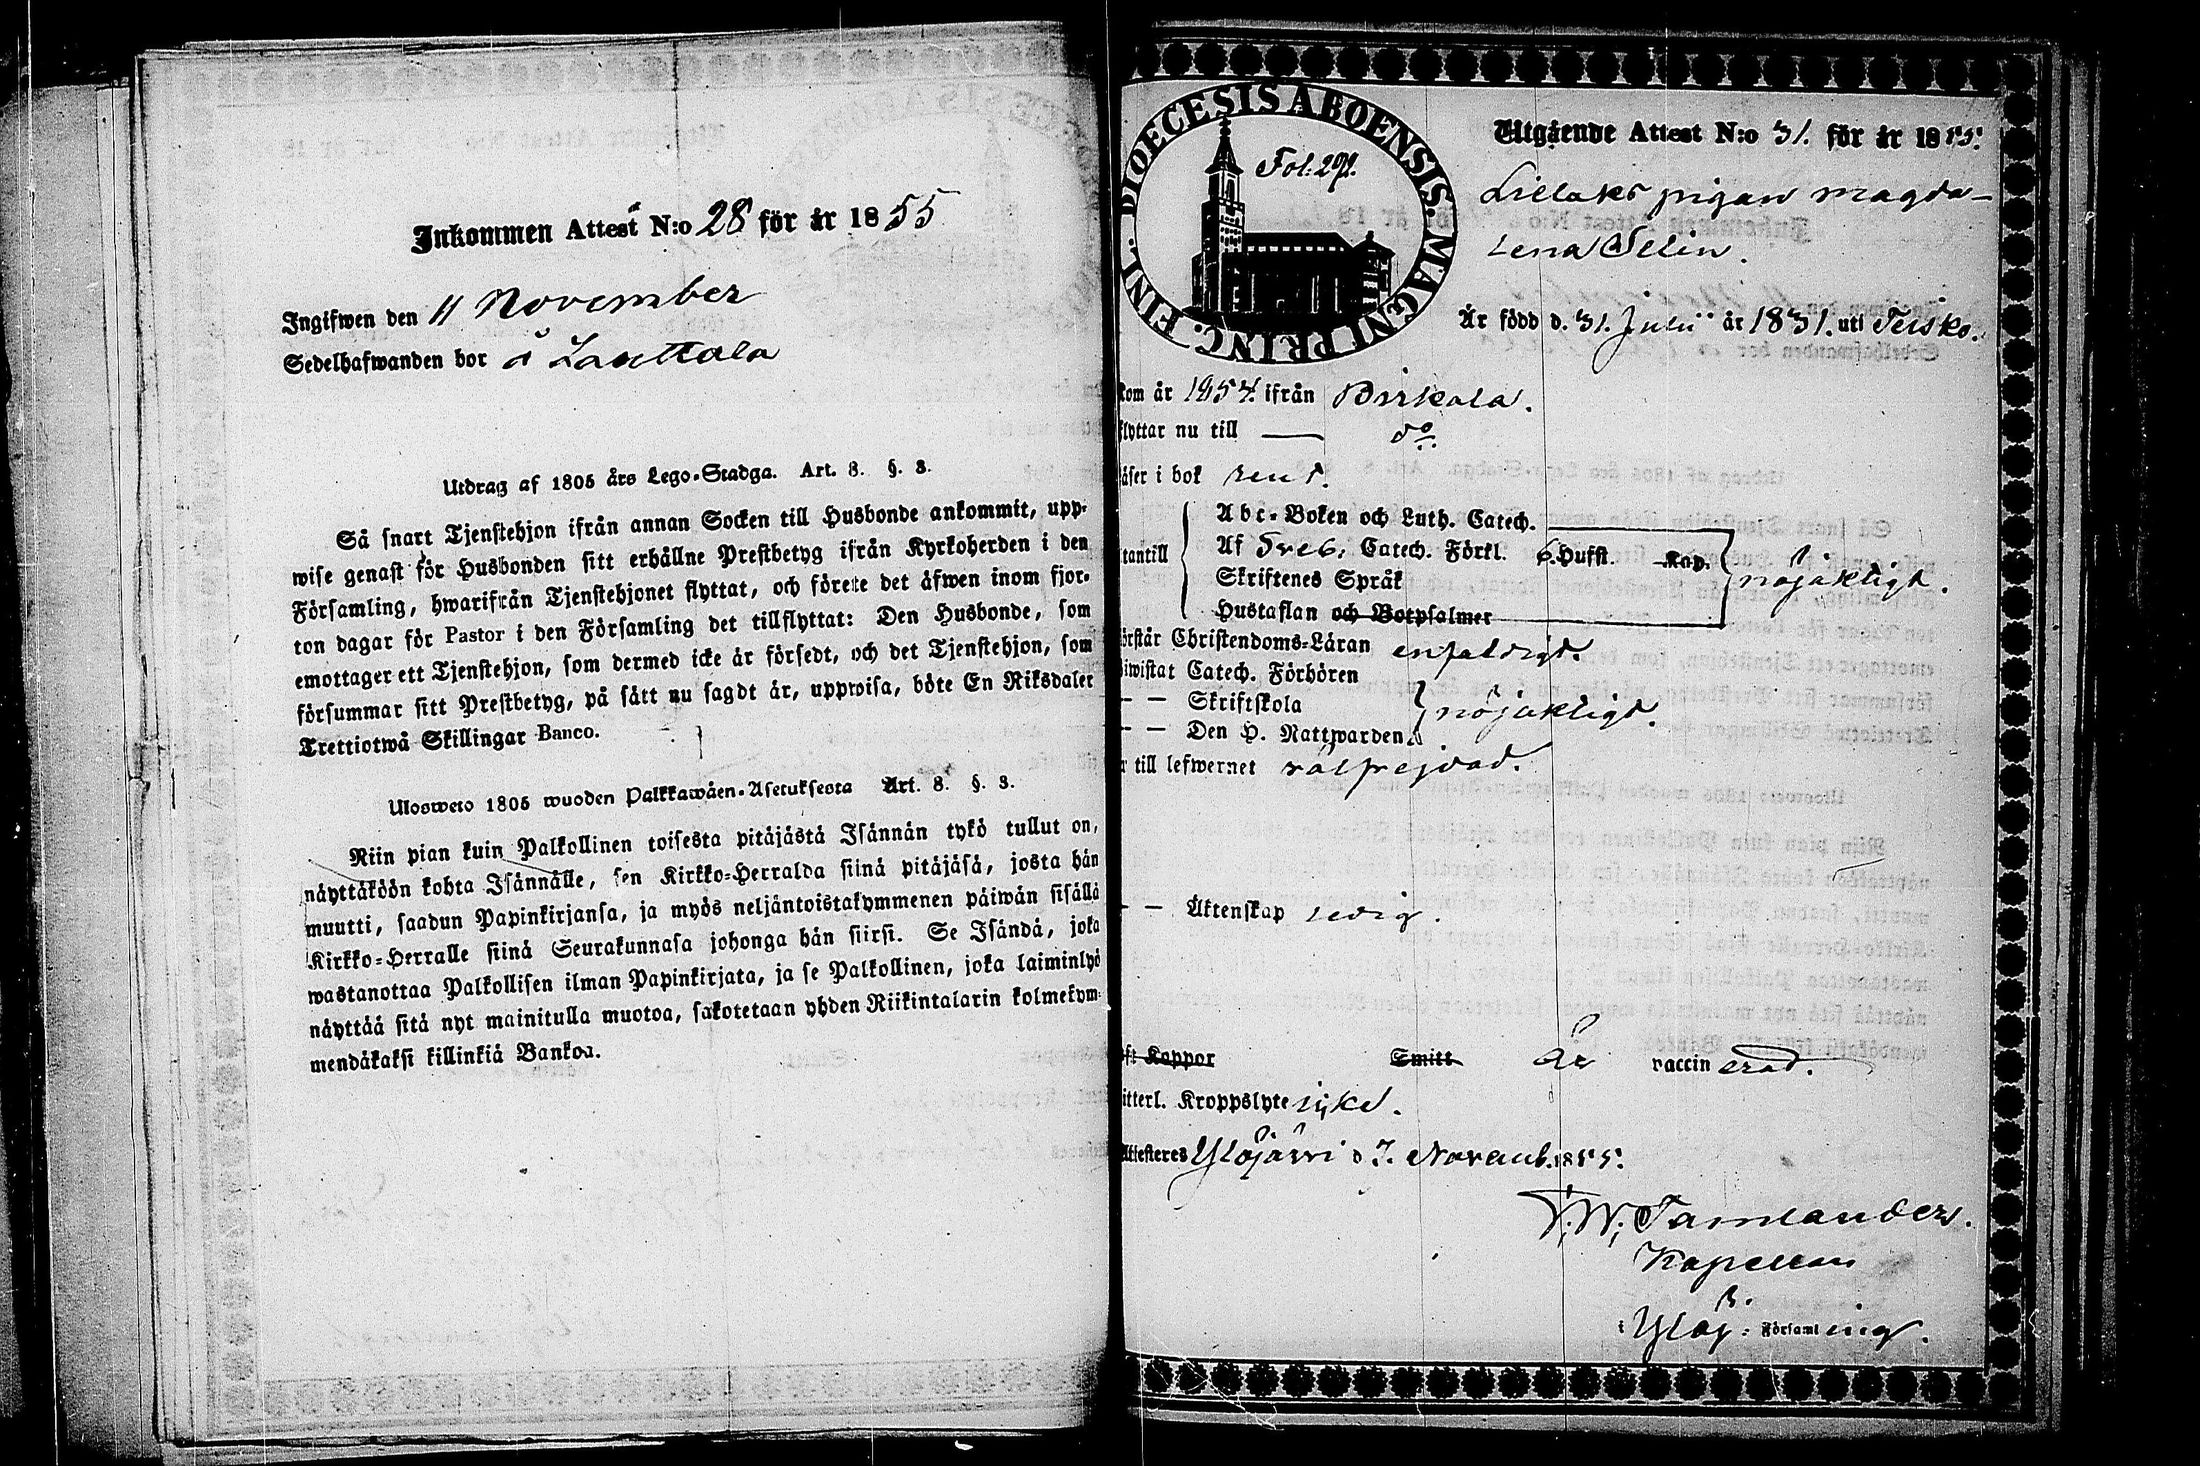 Inkommen Attest N:o 28 för år 1855
Ingifwen den 11 November
Sedelhafwanden bor å Lauttala
Utdrag af 1805 års Lego-Stadga. Art. 8. §. 3.
Så snart Tjenstehjon ifrån annan Socken till Husbonde ankommit, upp-
wise genast för Husbonden sitt erhållne Prestbetyg ifrån Kyrkoherden i den
Församling, hwarifrån Tjenstehjonet flyttat, och förete det äfwen inom fjor-
ton dagar för Pastor i den Församling det tillflyttat: Den Husbonde, som
emottager ett Tjenstehjon, som dermed icke är försedt, och det Tjenstehjon, som
försummar sitt Prestbetyg, på sätt nu sagdt är, uppwisa, böte En Riksdaler
Trettiotwå Skillingar Banco.
Uloswето 1805 wuoden Palkkawäen-Asetuksesta Art. 8. §. 3.
Niin pian kuin Palkollinen toisesta pitäjästä Isännän tykö tullut on,
näyttäköön kohta Isännälle, sen Kirkko-Herralda siinä pitäjäsä, josta hän
muutti, saadun Papinkirjansa, ja myös neljäntoistakymmenen päiwän sisällä
Kirkko-Herralle siinä Seurakunnasa johonga hän siirsi. Se Isändä, joka
wastanottaa Palkollisen ilman Papinkirjata, ja se Palkollinen, joka laiminlyö
näyttää sitä nyt mainitulla muotoa, sakotetaan yhden Riikintalarin kolmekym-
mendäkaksi killinkiä Bankoa.
DIOECESIS ABOENSIS. MAGNI PRINC. FINL.
Fol. 291.
Utgående Attest N:o 31. för år 1855.
Lielaks pigan Magda-
lena Selin.
Är född d. 31. Julii år 1831. uti Teisko.
kom år 1854. ifrån Birkala.
flyttar nu till — do.
läser i bok rent.
Abc-Boken och Luth. Catech.
utantill Af Sveb. Catech. Förkl. 6. Hufst. Kap. nöjaktligt.
Skriftenes Språk
Hustaflan och Botpsalmer
förstår Christendoms-Läran enfaldigt.
biwistat Catech. Förhören
— — Skriftskola nöjaktligt.
— — Den H. Nattwarden
r till lefwernet välfrejdad.
— — Äktenskap ledig.
ft Koppor Smitt är vaccinerad.
itterl. Kroppslyte icke.
Attesteres Ylöjärvi d 7. Novemb. 1855.
F. W. Tamlander.
Kapellan
i Ylöj: Församling.